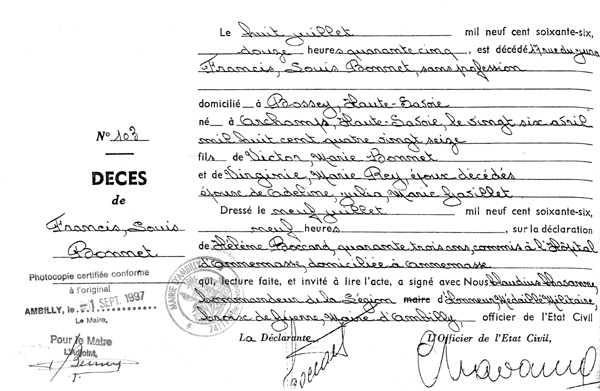 Le huit juillet mil neuf cent soixante-six,
douze heures quarante cinq, est décédé 17 rue du Jura
Francis, Louis Bonnet, sans profession
domicilié à Bossey, Haute-Savoie
né à Archamps, Haute-Savoie, le vingt six avril
mil huit cent quatre vingt seize
fils de Victor, Marie Bonnet
et de Virginie, Marie Rey, époux décédés
époux de Adeline, Julia, Marie
Dressé le neuf juillet mil neuf cent soixante-six,
neuf heures, sur la déclaration
de Hélène Boccard, quarante trois ans, commis à l'Hôpital
d'Annemasse, domiciliée à Annemasse
qui, lecture faite, et invité à lire l'acte, a signé avec Nous Claudius
Commandeur de la Légion maire d'Honneur, Médaille Militaire,
Croix de Guerre, Maire d'Ambilly officier de l'Etat Civil
La Déclarante, L'Officier de l'Etat Civil,
N° 103
DECES
de
Francis, Louis
Bonnet
Photocopie certifiée conforme
à l'original
AMBILLY, le -1 SEPT. 1997
Le Maire,
Pour le Maire
L'Adjoint,
MAIRIE D'AMBILLY